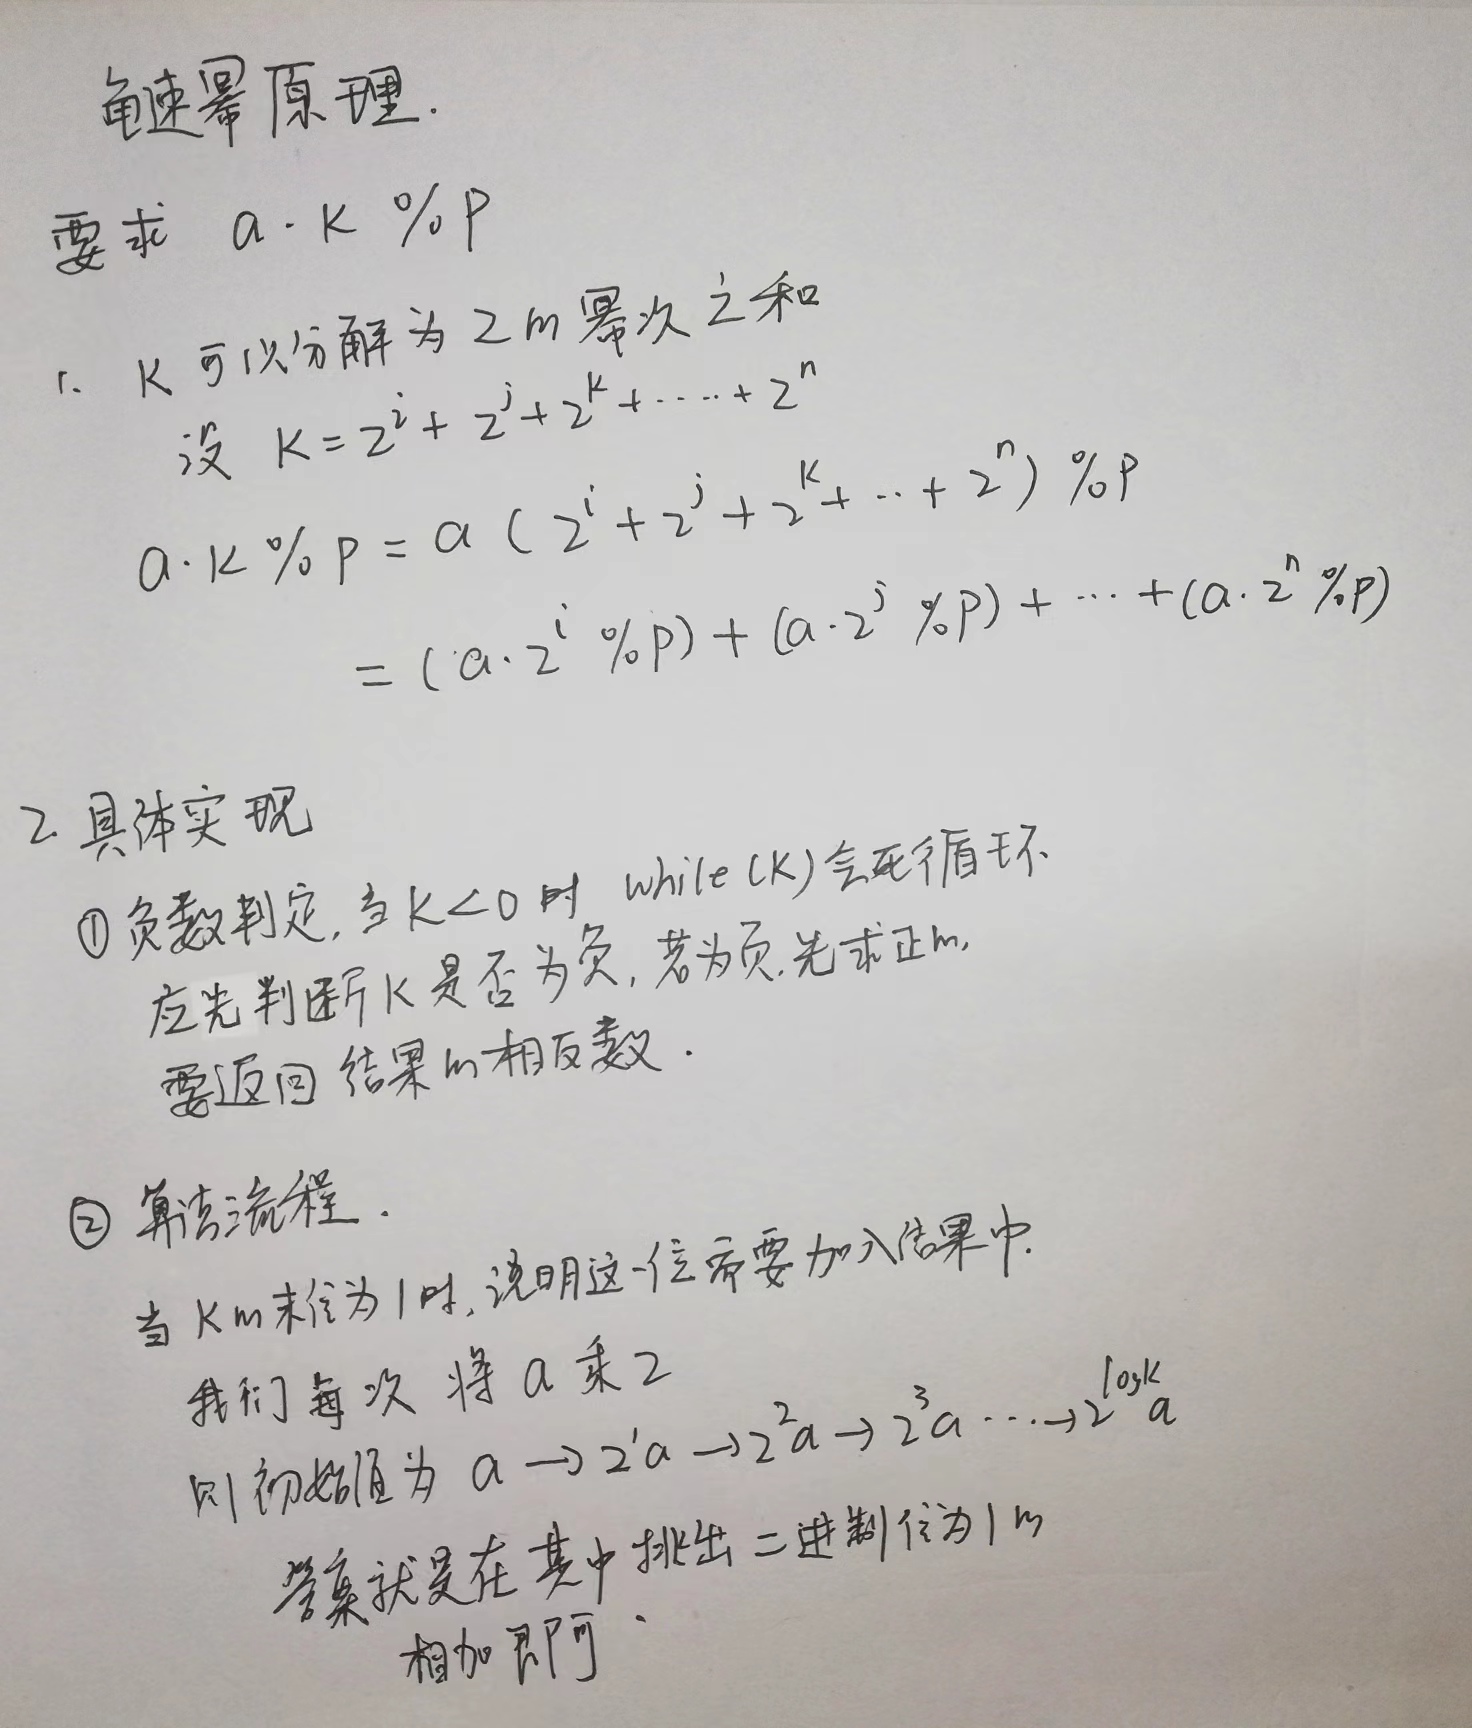 龟速幂原理.
要求 a·K %P
1. K可以分解为2的幂次之和
设 K=2^i+2^j+2^k+·····+2^n
a·K%P=a(2^i+2^j+2^k+··+2^n)%P
=(a·2^i %P)+(a·2^j %P)+···+(a·2^n %P)
2.具体实现
①负数判定,当K<0时 while(K)会死循环
应先判断K是否为负,若为负,先求正的,
要返回结果的相反数.
②算法流程.
当K的末位为1时,说明这一位需要加入结果中.
我们每次将a乘2
则初始值为 a→2^1a→2^2a→2^3a····→2^logk a
答案就是在其中挑出二进制位为1的
相加即可.